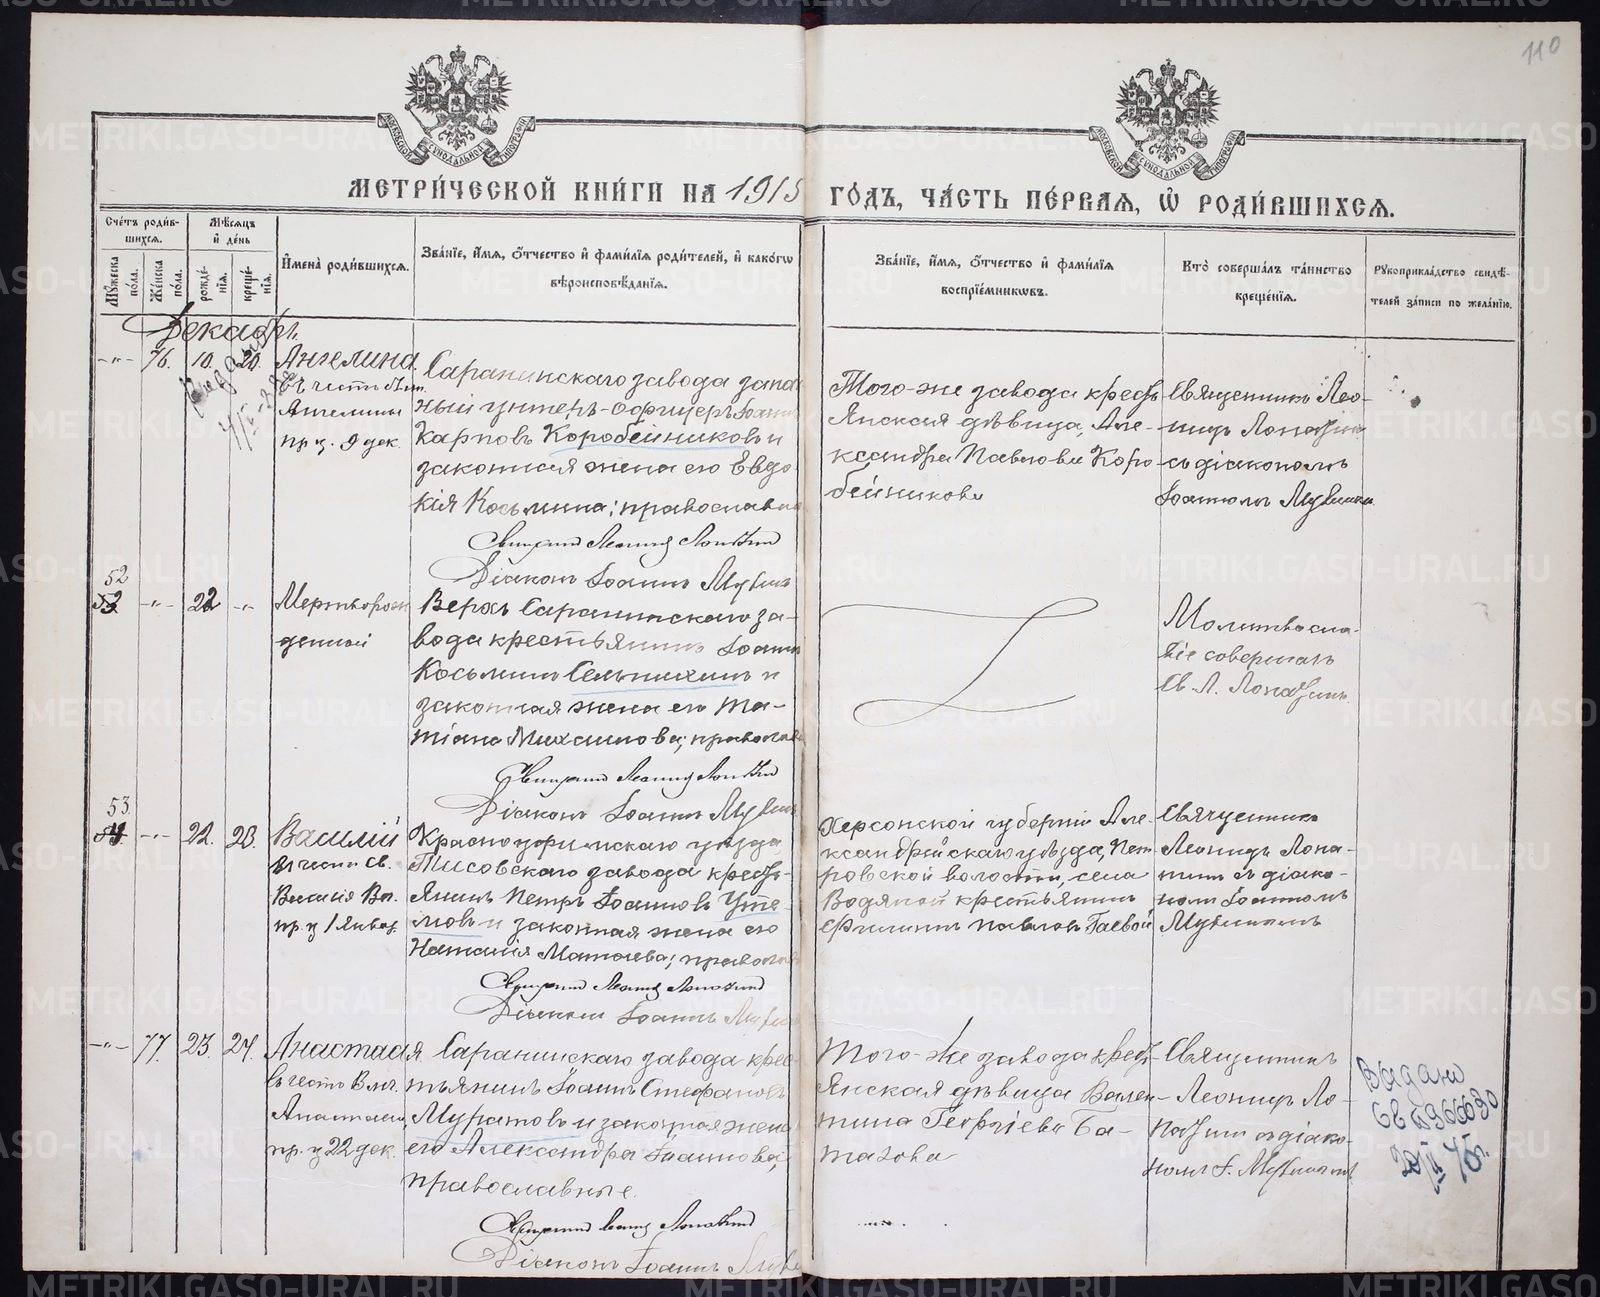 110
МЕТРИ́ЧЕСКОЙ КНИ́ГИ НА 1915 ГО́ДЪ, ЧА́СТЬ ПЕ́РВАЯ, Ѿ РОДИ́ВШИХСЯ.
Сче́тъ роди́вшихся.
Мꙋ́жеска по́ла.
Же́нска по́ла.
Мѣ́сяцъ и҆ де́нь
рожде́нїя.
креще́нїя.
И҆мена̀ роди́вшихся.
Зва́нїе, и҆́мя, ѻ҆́тчество и҆ фами́лїя роди́телей, и҆ како́гѡ
вѣроисповѣ́данїя.
Зва́нїе, и҆́мя, ѻ҆́тчество и҆ фами́лїя
воспрїе́мникѡвъ.
Кто̀ соверша́лъ та́инство
креще́нїя.
Рꙋкоприкла́дство свидѣ́-
телей за́писи по жела́нїю.
Декабрь.
-"- 76. 10. 20.
Ангелина
въ честь
Ангелины
пр. ц. 9 дек.
Саранинскаго завода запас
ный унтеръ-офицеръ Іоаннъ
Карповъ Коробейниковъ и
законная жена его Евдо-
кія Косьмина; православны
Священникъ Леонидъ Лопатинъ
Діаконъ Іоаннъ
Того-же завода крестъ
янская дѣвица, Але-
ксандра Павлова Коро-
бейникова
Священникъ Лео-
нидъ Лопатинъ
съ діакономъ
Іоанномъ
52
53 -"- 22 -"-
Мертворож
денный
Верхъ Саранинскаго за-
вода крестьянинъ Іоаннъ
Косьминъ и
законная жена его Та-
тіана Михаилова; православ
Священникъ Леонидъ Лопатинъ
Діаконъ Іоаннъ
Молитвосло-
віе совершалъ
Св. Л. Лопатинъ
53
54. -"- 22. 23.
Василій
въ честь св.
Василія Вел.
пр. ц 1 Январ.
Красноуфимскаго уѣзда
Тисовскаго завода кресть-
янинъ Петръ Іоанновъ Уте-
мовъ и законная жена его
Наталія Матѳеева; правосл
Священникъ Леонидъ Лопатинъ
Діаконъ Іоаннъ
Херсонской губерніи Але-
ксандрійскаго уѣзда, Пет
ровской волости, села
Водяной крестьянинъ
Филиппъ Павловъ Гаевой
Священникъ
Леонидъ Лопа-
тинъ съ діако-
номъ Іоанномъ
-"- 77. 23. 24.
Анастасія
въ честь Влмч.
Анастасіи
пр. ц 22 дек.
Саранинскаго завода крес
тьянинъ Іоаннъ Стефановъ
Муратовъ и законная жена
его Александра Іоаннова,
православные.
Священникъ Леонидъ Лопатинъ
Діаконъ Іоаннъ
Того-же завода кресть-
янская дѣвица Вален-
тина Георгіева Ба-
Священникъ
Леонидъ Ло-
патинъ съ діако-
номъ І.
Выдано